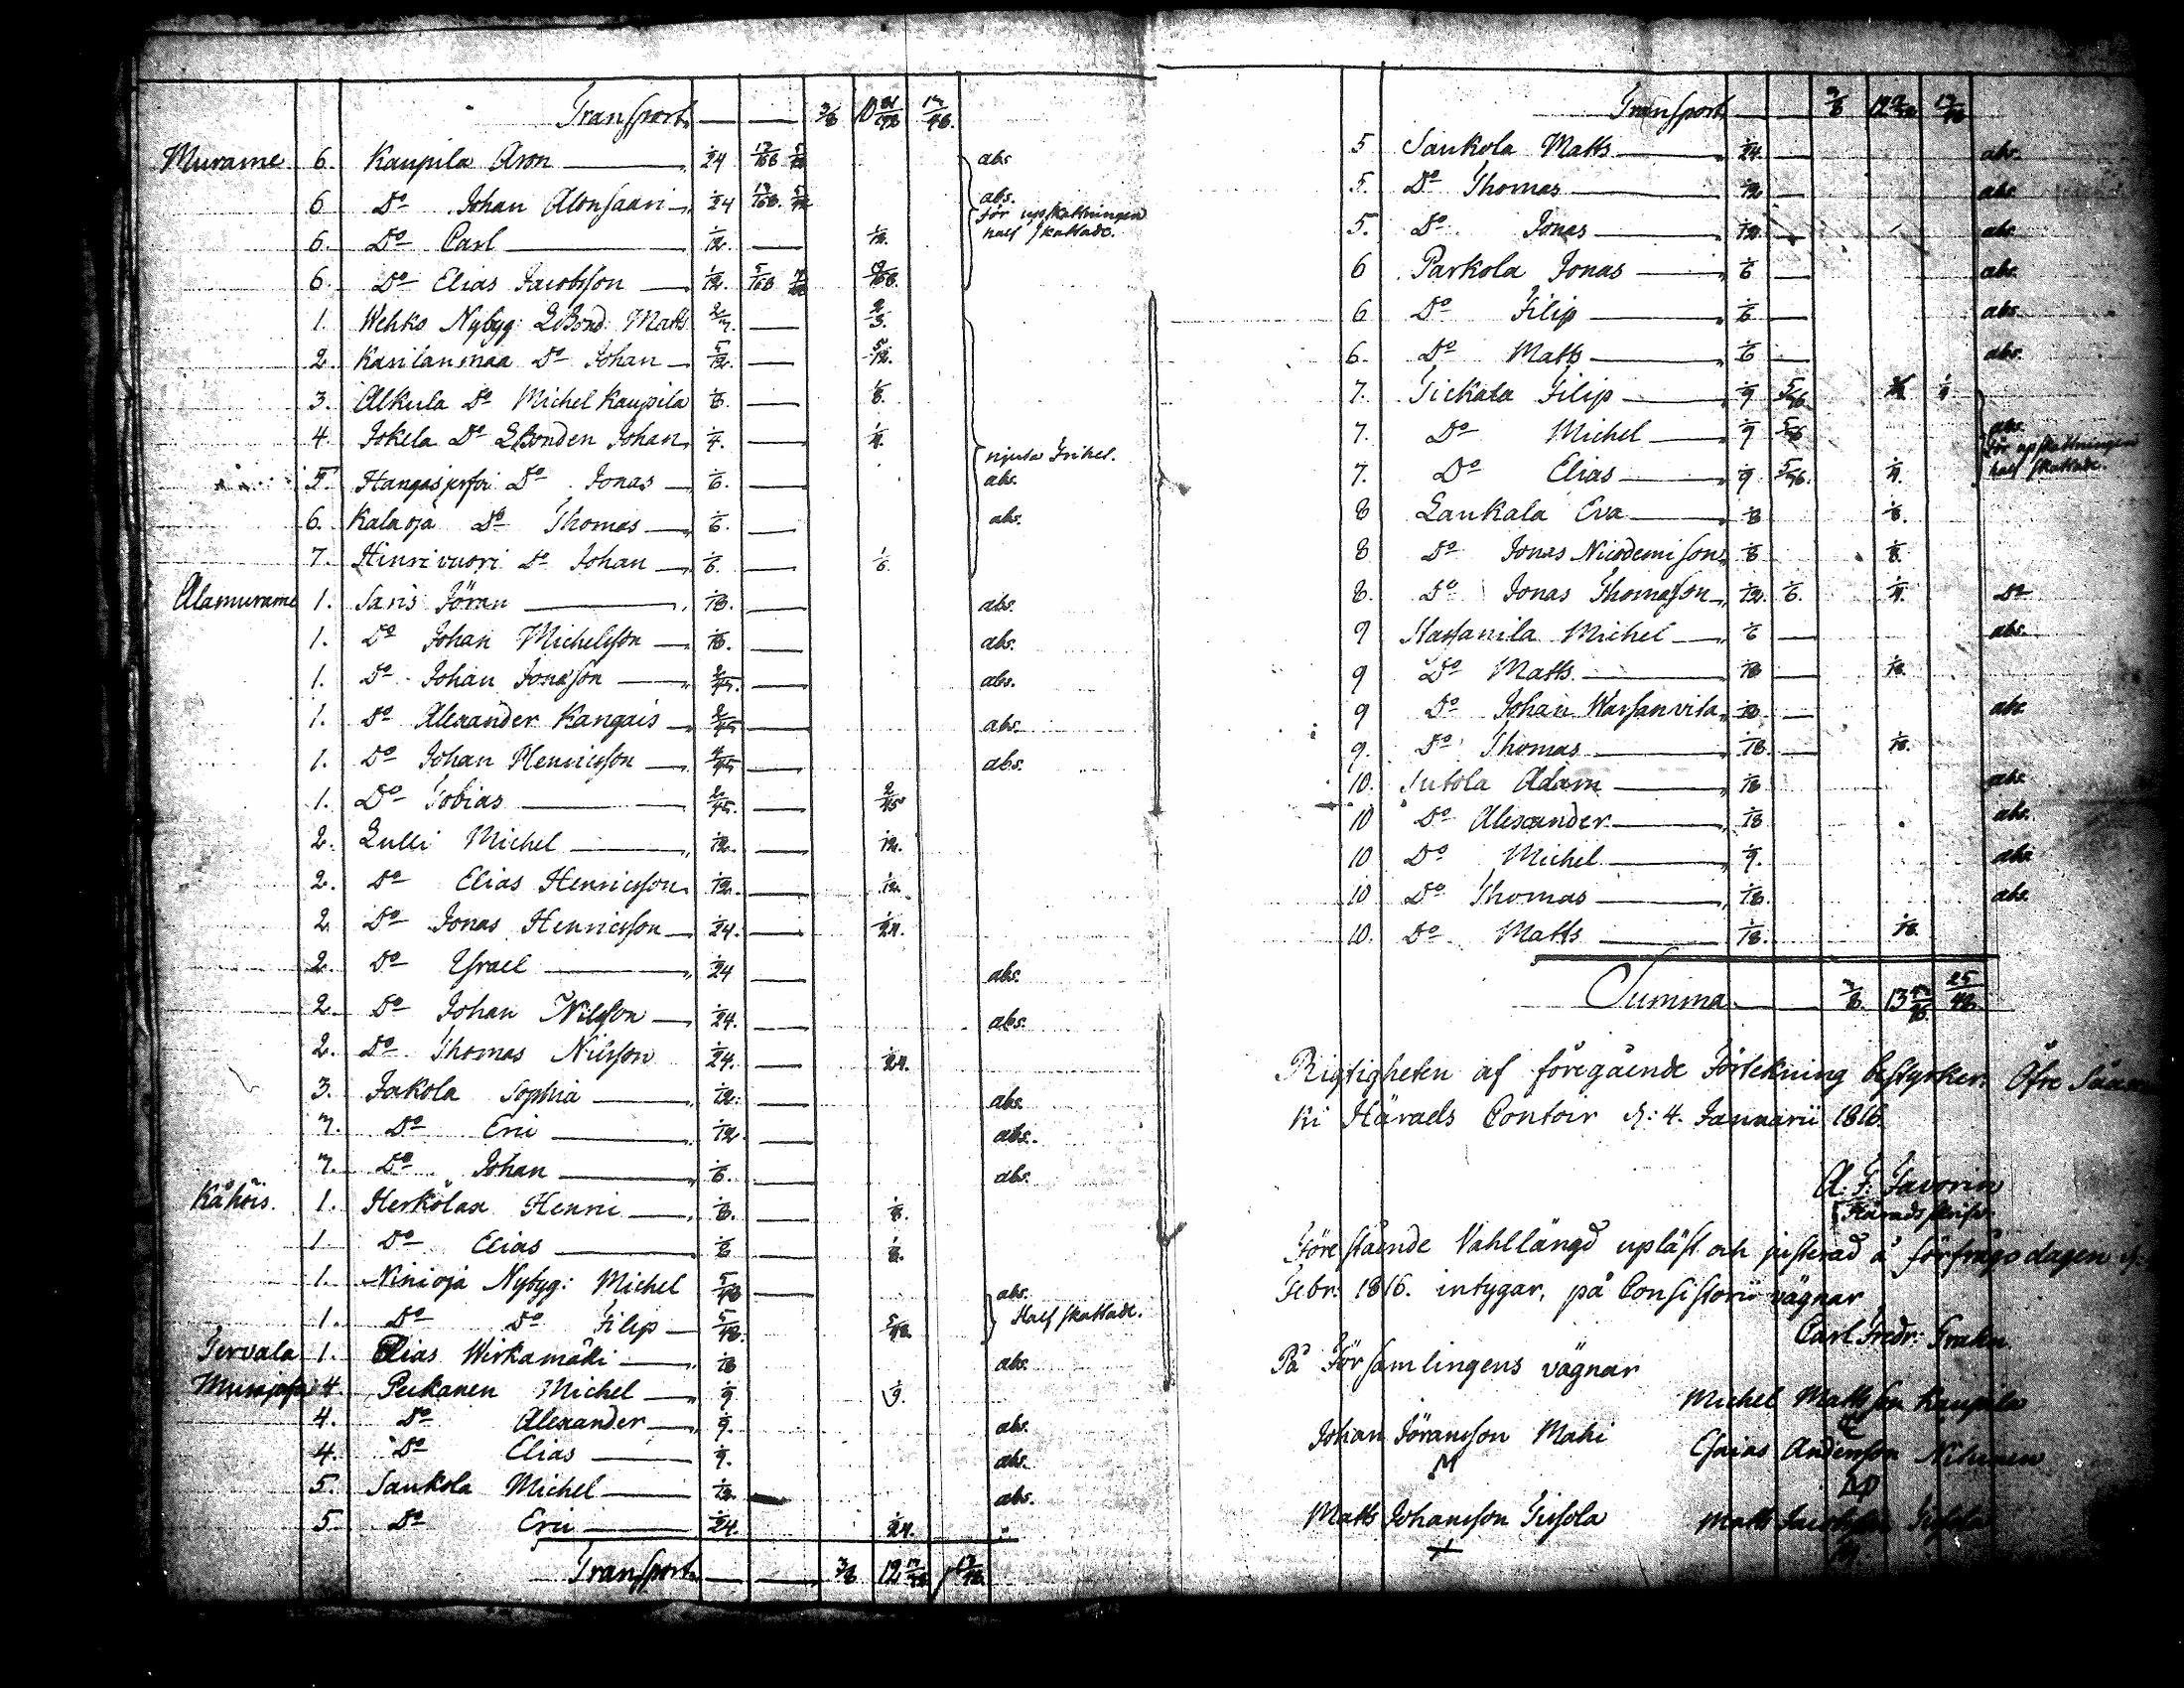 Transport 3/8 10 31/192 17/48.
Murame 6. Kaupila Aron 1/24 abs
6 Do Johan Alonsaari 1/24 abs.
för upskattningen
half skattade.
6. Do Carl 1/12. 1/12.
6. Do Elias Jacobsson 1/12.
1. Wehko Nybyg: LBond: Matts 2/3. 2/3.
2. Karilanmaa Do Johan 5/12. 5/12.
3. Alkula Do Michel Kaupila 1/8. 1/8.
4. Jokela Do LBonden Johan 1/4. 1/4.
njuta Frihet.
5. Do Jonas 1/6. abs.
6. Kalaoja Do Thomas 1/6. abs.
7. Hinrivuori Do Johan 1/6. 1/6.
Alamurame 1. Saris Jöran 1/18. abs.
1. Do Johan Michelsson 1/18. abs.
1. Do Johan Jonasson 2/45. abs.
1. Do Alexander Kangais 2/45 abs.
1. Do Johan Henricsson 4/45 abs.
1. Do Tobias 2/45. 2/45
2. Lulli Michel 1/12. 1/12.
2. Do Elias Henricsson 1/12. 1/12.
2 Do Jonas Henricsson 1/24. 1/24.
2. Do Ysrael 1/24 abs.
2. Do Johan Nilsson 1/24. abs.
2. Do Thomas Nilsson 1/24. 1/24.
3. Jakola Sophia 1/12. abs.
3. Do Eric 1/12. abs.
3. Do Johan 1/6. abs.
Kähöis. 1. Herkölax Henric 1/8. 1/8.
1 Do Elias 1/8 1/8.
1. Ninioja Nybyg: Michel 5/48 abs.
Half skattade.
1. Do Do Filip 5/48. 5/48.
Jervala 1. Elias Wirkamäki 1/18 abs.
4. Peikanen Michel 1/9 1/9.
4. Do Alexander 1/9. abs.
4. Do Elias 1/9. abs.
5. Saukola Michel 1/12. abs.
5. Do Eric 1/24. 1/24.
Transport 3/8 12 17/48.
Transport 3/8 12 17/48
5 Saukola Matts 1/24. abs.
5. Do Thomas 1/12 abs
5. Do Jonas 1/12. abs
6 Parkola Jonas 1/6 abs.
6 Do Filip 1/6 abs.
6. Do Matts 1/6 abs.
7. Tickala Filip 1/9 5/96
7. Do Michel 1/9 5/96 abs.
för upskattningen
half skattade.
7. Do Elias 1/9 5/96. 1/4.
8 Laukala Eva 1/8 1/8.
8 Do Jonas Nicodemisson 1/8 1/8.
8. Do Jonas Thomasson 1/12. 1/6. 1/4. Do
9 Michel 1/6 abs.
9 Do Matts 1/18 1/18.
9 Do Johan 1/18 abs
9. Do Thomas 1/18. 1/18.
10. Adam 1/18 abs
10 Do Alexander 1/18 abs.
10 Do Michel 1/9. abs
10 Do Thomas 1/18. abs.
10. Do Matts 1/18. 1/18.
Summa 3/8. 13 25/48.
Rigtigheten af föregående Förtekning bestyrker. Öfre
ki Härads Contoir d: 4. Januarii 1816.
A. F. Favorin
Häradsskrifv
Förestående Vahllängd upläst och justerad å förfrågsdagen d.
Febr. 1816. intygar, på Consistorii vägnar
Carl Fredr:
På Församlingens vägnar
Michel Mattsson Kaupila
Johan Jöransson Mahi
Esaias Andersson Nihinen
Matts Johansson Tissola
Matts